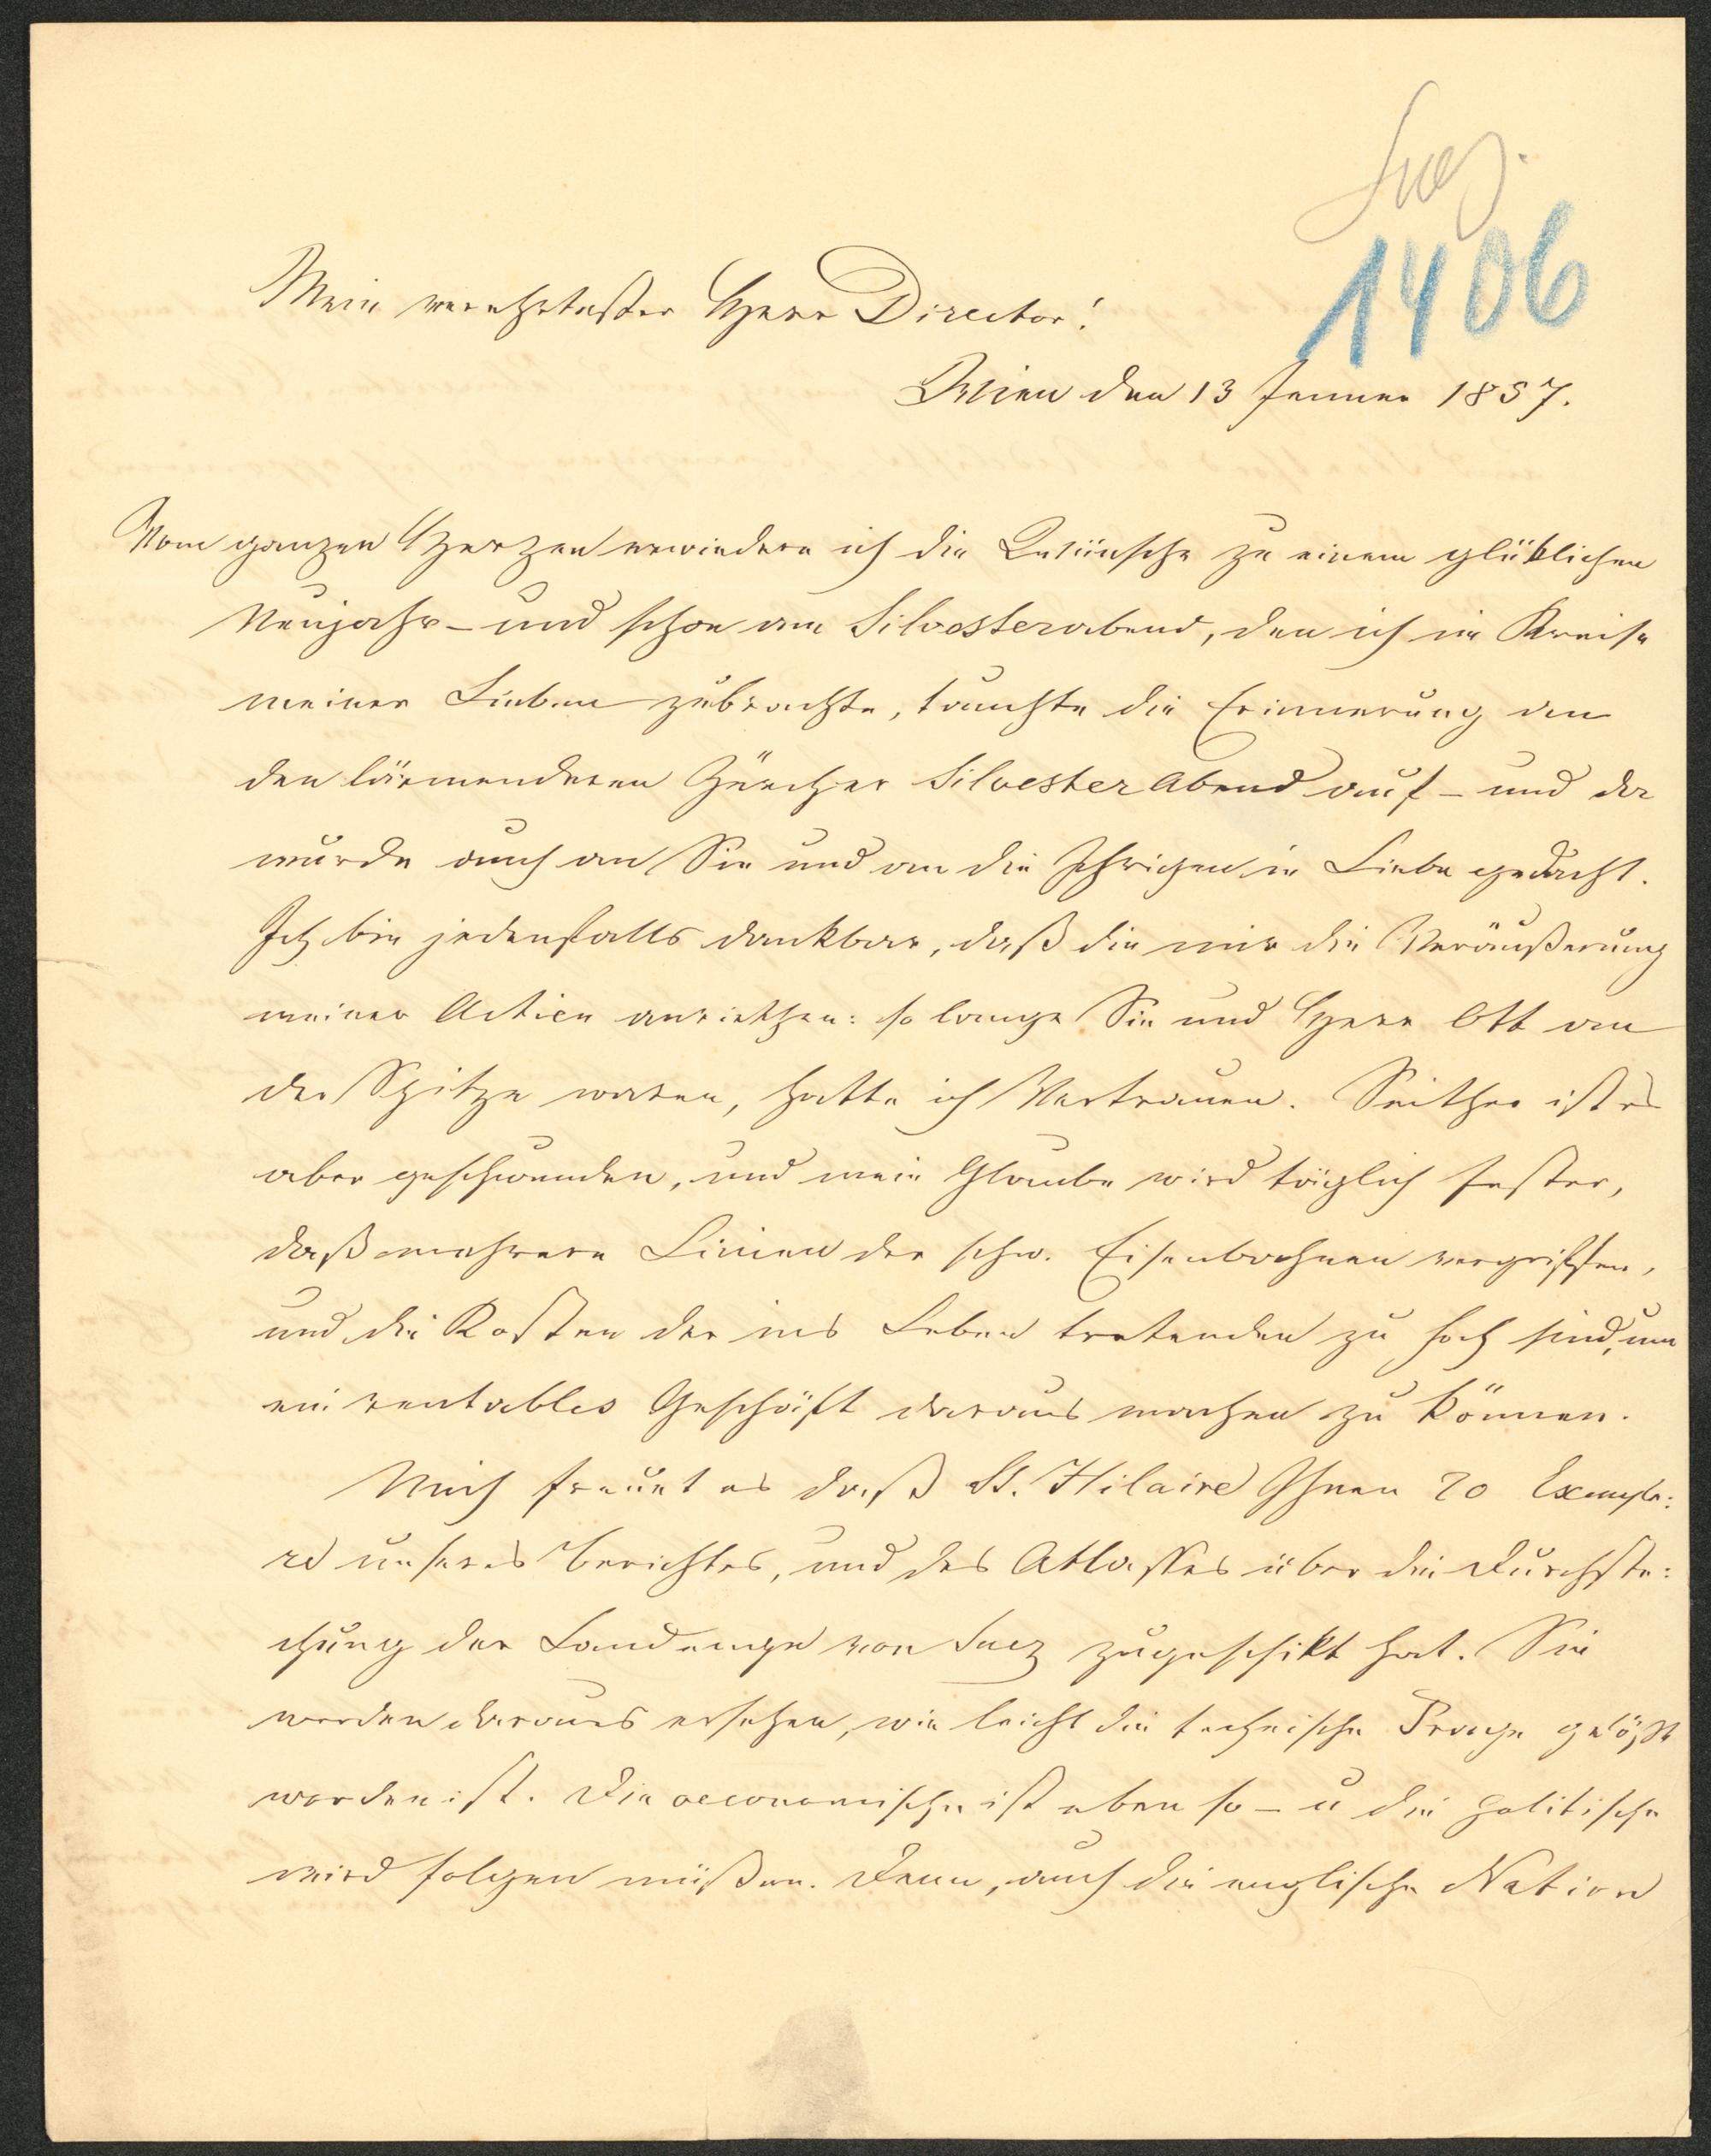 Suez.
1406
Mein verehrtester Herr Director!
Wien den 13 Jenner 1857.
Vom ganzen Herzen erwiedere ich die Wünsche zu einem glüklichen
Neujahr – und schon am Silvesterabend, den ich im Kreise
meiner Lieben zubrachte, tauchte die Erinnerung an
den lärmenderen Zürcher Silvester Abend auf – und da
wurde auch an Sie und an die Ihrigen in Liebe gedacht.
Ich bin jedenfalls dankbar, daß die mir die Veräußerung
meiner Actien anriethen: so lange Sie und Herr Ott an
der Spitze waren, hatte ich Vertrauen. Seither ist es
aber geschwunden, und mein Glaube wird täglich fester,
daß mehrere Linien der schw. Eisenbahnen vergriffen,
und die Kosten der ins Leben tretenden zu hoch sind, um
ein rentables Geschäft daraus machen zu können.
Mich freuet es daß St. Hilaire Ihnen 20 Exempla:
re unseres Berichtes, und des Atlasses über die Durchste:
chung der Landenge von Suez zugeschikt hat. Sie
werden daraus ersehen, wie leicht die technische Frage gelößt
worden ist. Die oeconomische ist eben so – u die politische
wird folgen müßen. Denn, auch die englische Nation